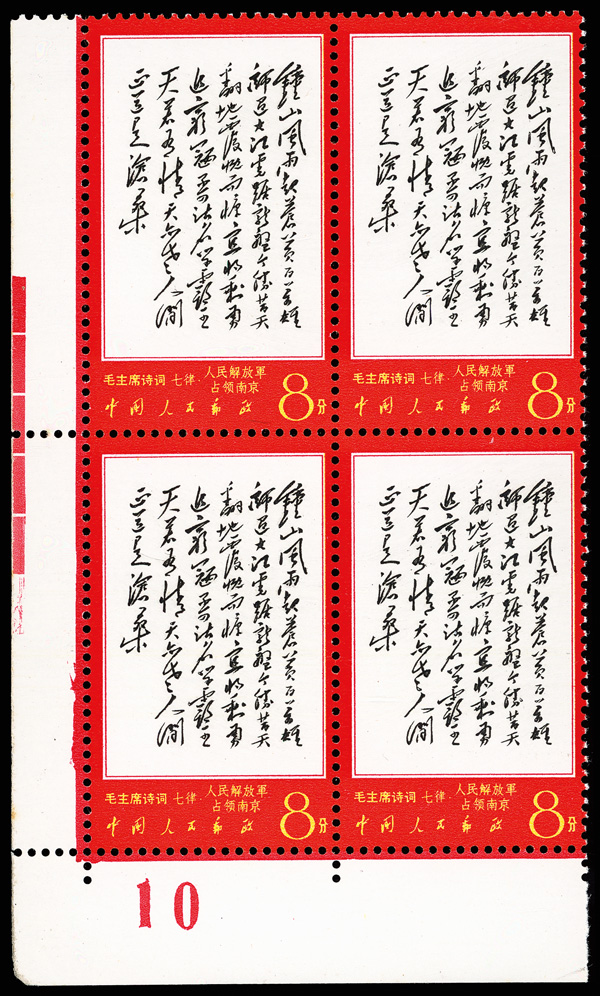 鐘山風雨起蒼黄百萬雄
師過大江虎踞龍盤今勝昔天
翻地覆慨而慷宜將剩勇
追窮寇不可沽名學霸王
天若有情天亦老人間
正道是滄桑
毛主席诗词 七律·人民解放軍
占领南京
中國人民郵政 8分
鐘山風雨起蒼黄百萬雄
師過大江虎踞龍盤今勝昔天
翻地覆慨而慷宜將剩勇
追窮寇不可沽名學霸王
天若有情天亦老人間
正道是滄桑
毛主席诗词 七律·人民解放軍
占领南京
中國人民郵政 8分
鐘山風雨起蒼黄百萬雄
師過大江虎踞龍盤今勝昔天
翻地覆慨而慷宜將剩勇
追窮寇不可沽名學霸王
天若有情天亦老人間
正道是滄桑
毛主席诗词 七律·人民解放軍
占领南京
中國人民郵政 8分
鐘山風雨起蒼黄百萬雄
師過大江虎踞龍盤今勝昔天
翻地覆慨而慷宜將剩勇
追窮寇不可沽名學霸王
天若有情天亦老人間
正道是滄桑
毛主席诗词 七律·人民解放軍
占领南京
中國人民郵政 8分
10